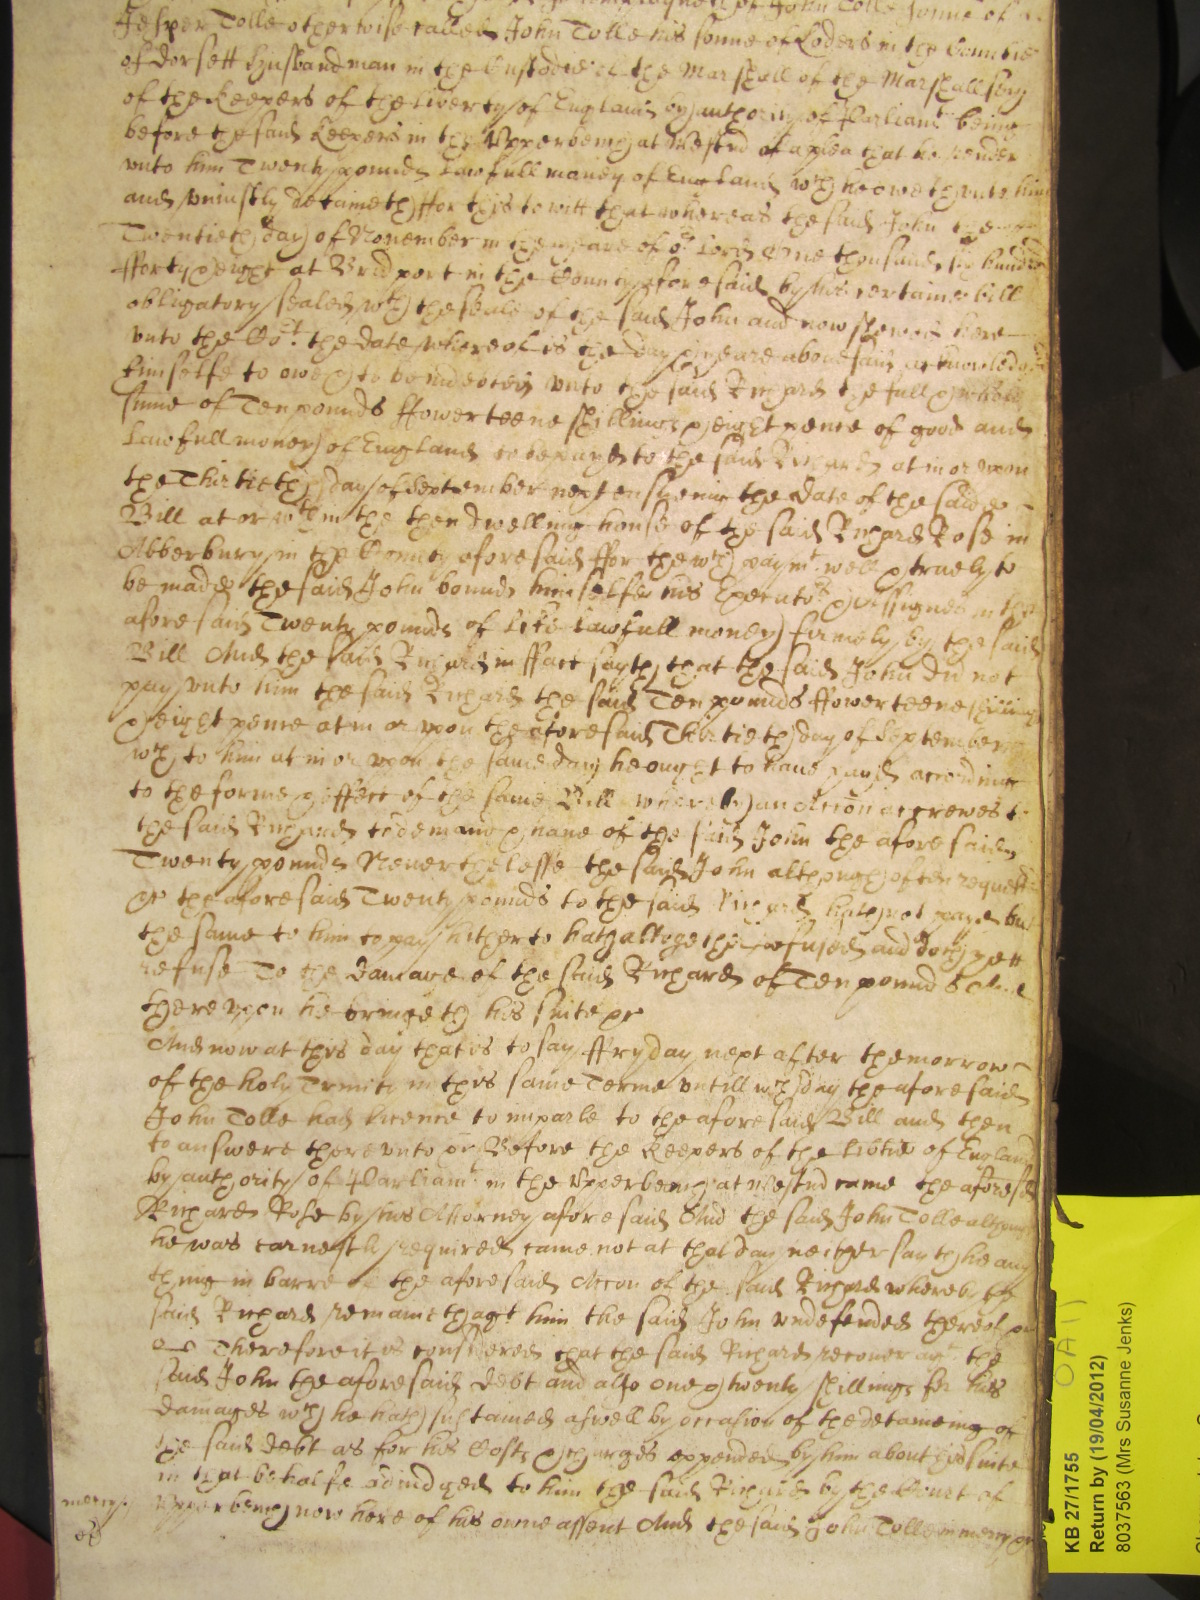 of John Tolle sonne of
Jesper Tolle otherwise called John Tolle his sonne of Loders in the Countie
of dorsett husbandman in the Custodie of the Marshall of the Marshallsey
of the Keepers of the liberty of England by authority of Parliamt being
before the said Keepers in the Vpperbench at Westmr of a plea that he render
vnto him Twenty pounds lawfull money of England wch he oweth vnto him
and vniustly detaineth ffor this to witt that whereas the said John the
Twentieth day of November in the yeare of or Lord One thousand six hundred
fforty & eight at Bridport in the County aforesaid by his certaine bill
obligatory sealed wth the seale of the said John and now shewed here
vnto the Cort the date whereof is the day & yeare abovesaid acknowledged
himselfe to owe & to be indebted vnto the said Richard the full & whole
summe of Ten pounds ffowerteene shillings & eight pence of good and
Lawfull money of England to be payd to the said Richard at in or vpon
the Thirtieth day of September next ensueing the date of the saide
Bill at or wthin the then dwelling house of the said Richard Rose in
Abberbury in the County aforesaid ffor the wch paymt well & truely to
be made the said John bound himselfe his Executors & Assignes in the
aforesaid Twenty pounds of like lawfull money firmely by the said
Bill And the said Richard in ffact sayth that the said John did not
pay vnto him the said Richard the said Ten pounds ffowerteene shillings
& eight pence at in or vpon the aforesaid Thirtieth day of September
wch to him at in or vpon the same day he ought to have payd according
to the forme & effect of the same Bill whereby an Accon accrewes to
the said Richard to demand & have of the said John the aforesaid
Twenty pounds Neverthelesse the said John although often requested
&c the aforesaid Twenty pounds to the said Richard hath not payd but
the same to him to pay hitherto hath altogether refused and doth yett
refuse To the damage of the said Richard of Ten pounds And
therevpon he bringeth his suite &c
And now at this day that is to say ffryday next after the morrow
of the holy Trinity in this same Terme vntill wch day the aforesaid
John Tolle had licence to imparle to the aforesaid Bill and then
to answere therevnto &c Before the Keepers of the libtie of England
by authority of Parliamt in the Vpperbench at Westmr came the aforesd
Richard Rose by his Attorney aforesaid And the said John Tolle although
he was earnestly required came not at that day neither sayth he any
thing in barre of the aforesaid Accon of the said Richard whereby the
said Richard remaineth agt him the said John vndefended thereof &c
Therefore it is considered that the said Richard recover agt the
said John the aforesaid debt and also One & twenty shillings for his
damages wch he hath sustained aswell by occasion of the detaineing of
the said debt as for his Costs & charges expended by him about his suite
in that behalfe adiudged to him the said Richard by the Court of
mercy. Vpperbench now here of his owne assent And the said John Tolle in mercy &c
KB 27/1755
Return by (19/04/2012)
8037563 (Mrs Susanne Jenks)